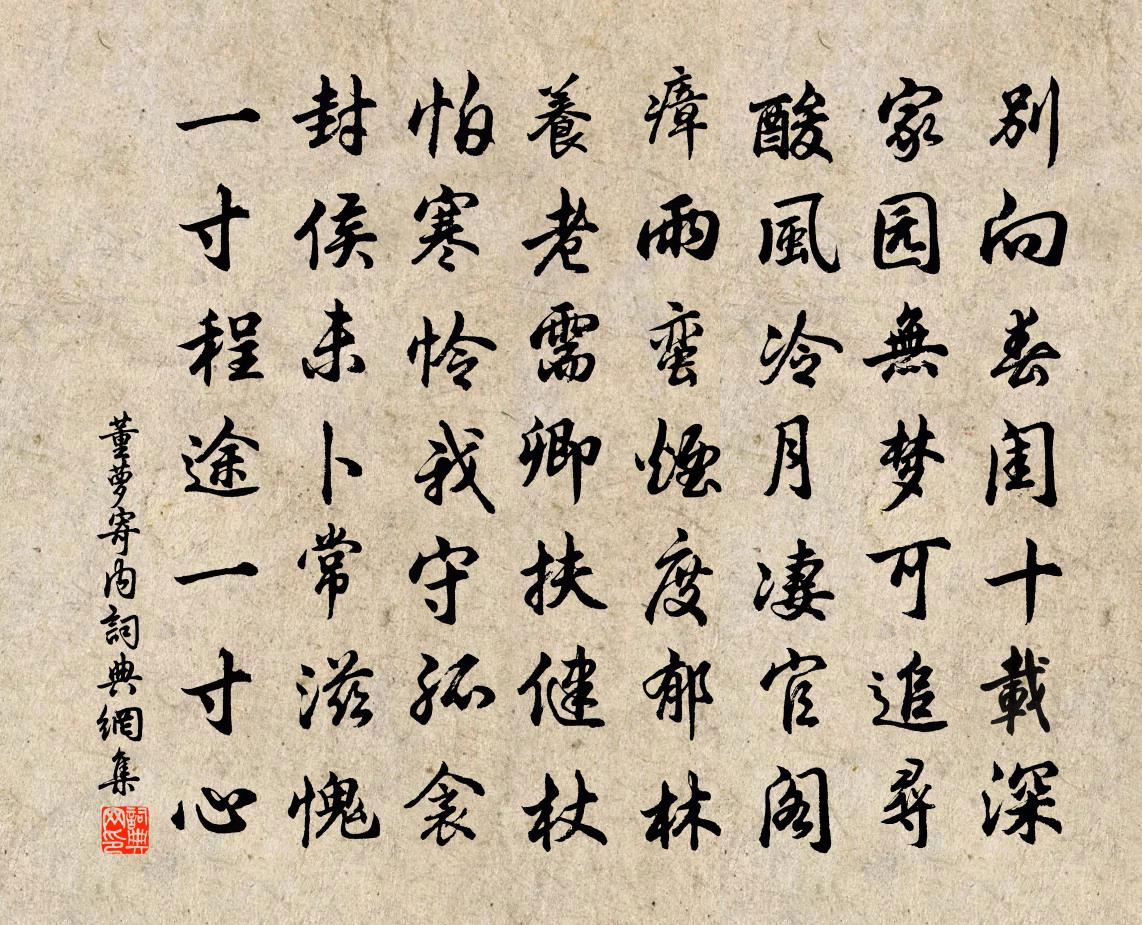 别向春闺十載深
家园無梦可追尋
酸風冷月凄官阁
瘴雨蛮煙度郁林
養老需卿扶健杖
怕寒怜我守孤衾
封侯未卜常滋愧
一寸程途一寸心
董蘿寄内詞典網集
詞典網印